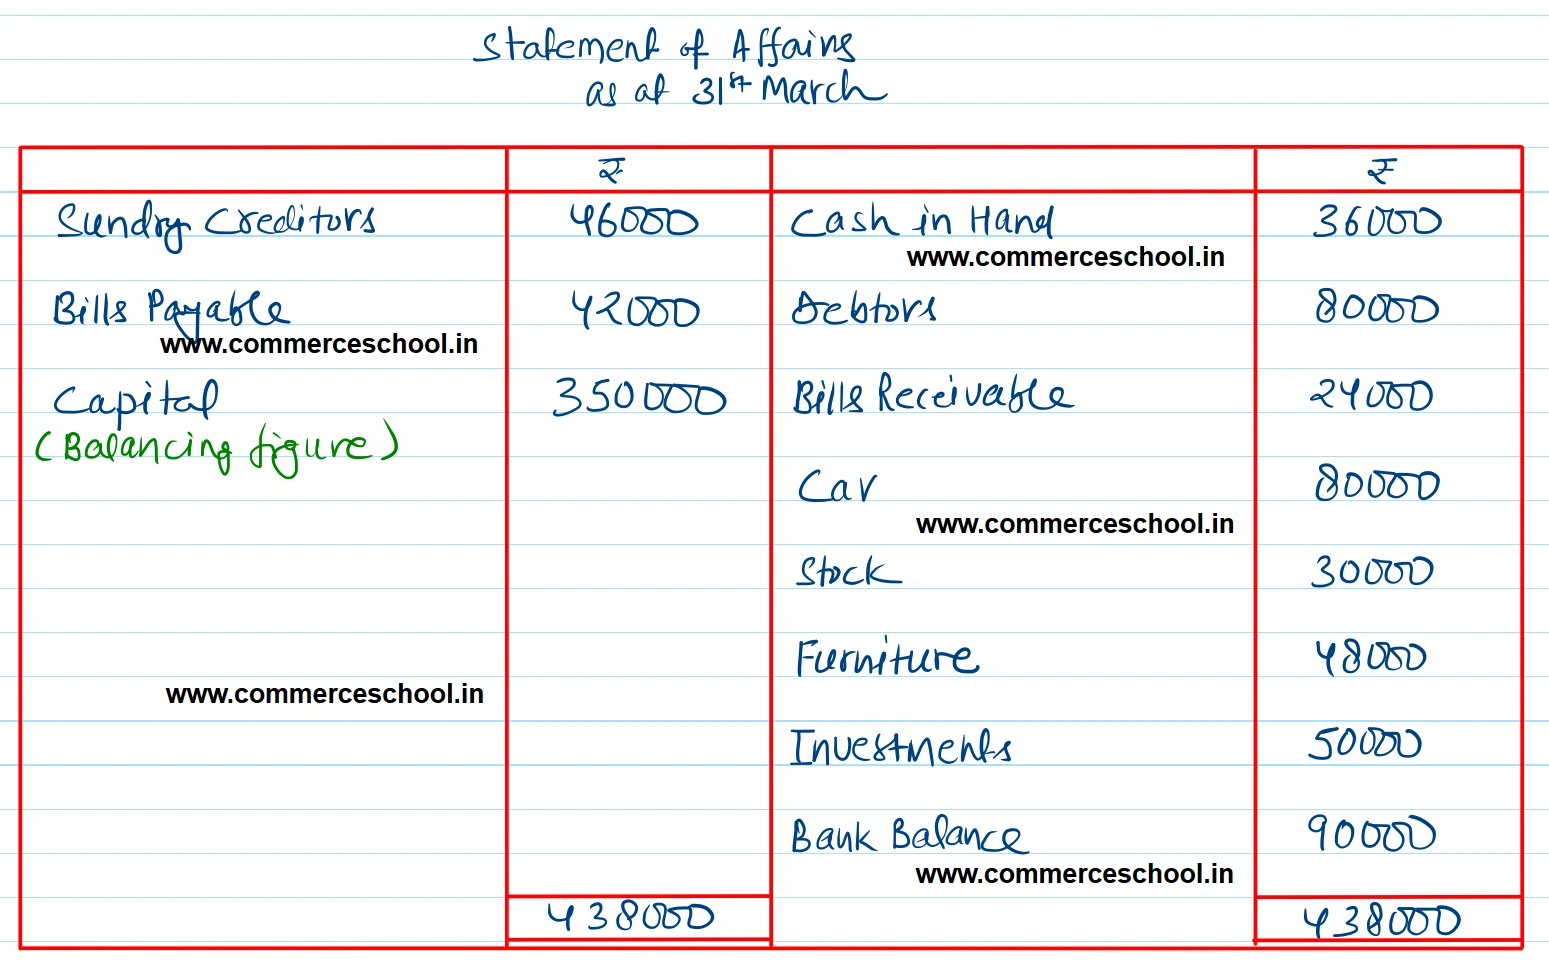 Statement of Affairs
as at 31st March
₹ ₹
Sundry Creditors 46000 Cash in Hand 36000
www.commerceschool.in
Bills Payable 42000 Debtors 80000
www.commerceschool.in
Capital 350000 Bills Receivable 24000
(Balancing figure)
Car 80000
www.commerceschool.in
Stock 30000
Furniture 48000
www.commerceschool.in
Investments 50000
Bank Balance 90000
www.commerceschool.in
438000 438000